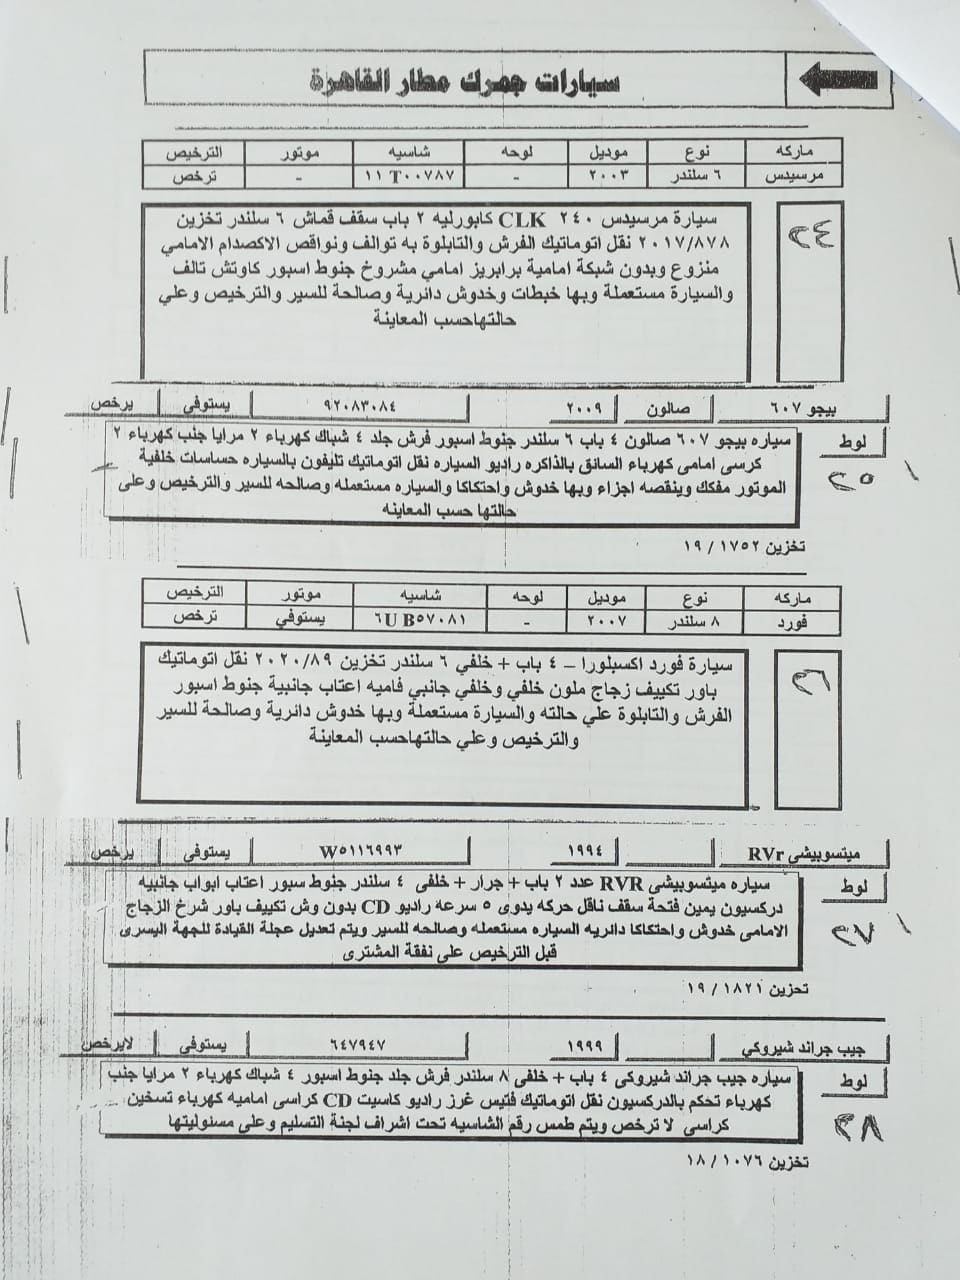 سيارات جمرك مطار القاهرة
ماركه نوع موديل لوحه شاسيه موتور الترخيص
مرسيدس ٦ سلندر ٢٠٠٣ - ١١ T٠٠٧٨٧ - ترخص
٢٤
سيارة مرسيدس CLK ٢٤٠ كابورليه ٢ باب سقف قماش ٦ سلندر تخزين
٢٠١٧/٨٧٨ نقل اتوماتيك الفرش والتابلوة به توالف ونواقص الاكصدام الامامي
منزوع وبدون شبكة امامية برابريز امامي مشروخ جنوط اسبور كاوتش تالف
والسيارة مستعملة وبها خبطات وخدوش دائرية وصالحة للسير والترخيص وعلي
حالتهاحسب المعاينة
بيجو ٦٠٧ صالون ٢٠٠٩ ٩٢٠٨٣٠٨٤ يستوفي يرخص
لوط
٢٥
سياره بيجو ٦٠٧ صالون ٤ باب ٦ سلندر جنوط اسبور فرش جلد ٤ شباك كهرباء ٢ مرايا جنب كهرباء ٢
كرسى امامى كهرباء السائق بالذاكره راديو السياره نقل اتوماتيك تليفون بالسياره حساسات خلفية
الموتور مفكك وينقصه اجزاء وبها خدوش واحتكاكا والسياره مستعمله وصالحه للسير والترخيص وعلى
حالتها حسب المعاينه
تخزين ١٧٥٢ / ١٩
ماركه نوع موديل لوحه شاسيه موتور الترخيص
فورد ٨ سلندر ٢٠٠٧ - ٦U B٥٧٠٨١ يستوفي ترخص
٢٦
سيارة فورد اكسبلورا – ٤ باب + خلفي ٦ سلندر تخزين ٢٠٢٠/٨٩ نقل اتوماتيك
باور تكييف زجاج ملون خلفي وخلفي جانبي فاميه اعتاب جانبية جنوط اسبور
الفرش والتابلوة علي حالته والسيارة مستعملة وبها خدوش دائرية وصالحة للسير
والترخيص وعلي حالتهاحسب المعاينة
ميتسوبيشى RVr ١٩٩٤ W٥١١٦٩٩٣ يستوفي يرخص
لوط
٢٧
سياره ميتسوبيشى RVR عدد ٢ باب + جرار + خلفى ٤ سلندر جنوط سبور اعتاب ابواب جانبيه
دركسيون يمين فتحة سقف ناقل حركه يدوى ٥ سرعه راديو CD بدون وش تكييف باور شرخ الزجاج
الامامى خدوش واحتكاكا دائريه السياره مستعمله وصالحه للسير ويتم تعديل عجلة القيادة للجهة اليسرى
قبل الترخيص على نفقة المشترى
تخزين ١٨٢١ / ١٩
جيب جراند شيروكي ١٩٩٩ ٦٤٧٩٤٧ يستوفي لايرخص
لوط
٢٨
سياره جيب جراند شيروكى ٤ باب + خلفى ٨ سلندر فرش جلد جنوط اسبور ٤ شباك كهرباء ٢ مرايا جنب
كهرباء تحكم بالدركسيون نقل اتوماتيك فتيس غرز راديو كاسيت CD كراسى اماميه كهرباء تسخين
كراسى لا ترخص ويتم طمس رقم الشاسيه تحت اشراف لجنة التسليم وعلى مسئوليتها
تخزين ١٠٧٦ / ١٨